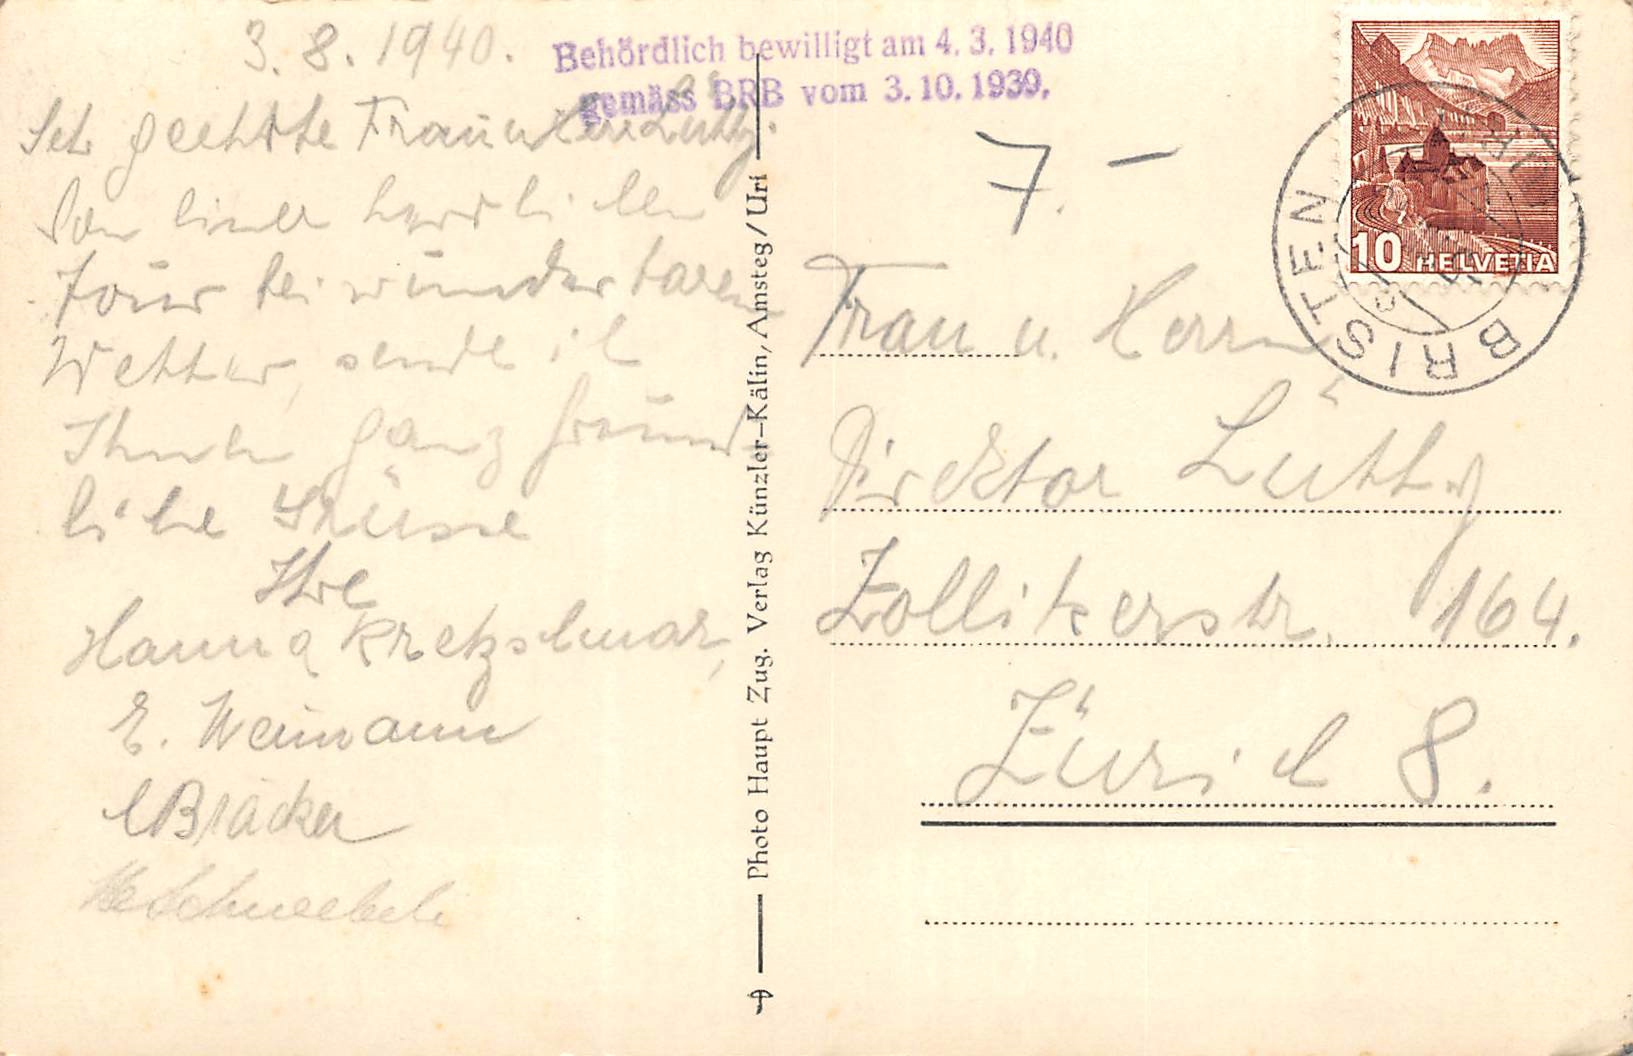 3. 8. 1940.
Behördlich bewilligt am 4. 3. 1940
gemäss BRB vom 3. 10. 1939.
Seh geehrte Frau u Herr Lüthy.
Von einer herrlichen
Tour bei wunderbaren
Wetter, sende ich
Ihnen ganz freund-
liche Grüsse
Ihre
Hanna Kretzschmar,
E. Weimann
Bräcker
Schneebeli
Photo Haupt Zug. Verlag Künzler-Kälin, Amsteg/Uri
7. –
10 HELVETIA
BRISTEN
Frau u. Herrn
Direktor Lüthy
Zollikerstr. 164.
Zürich 8.